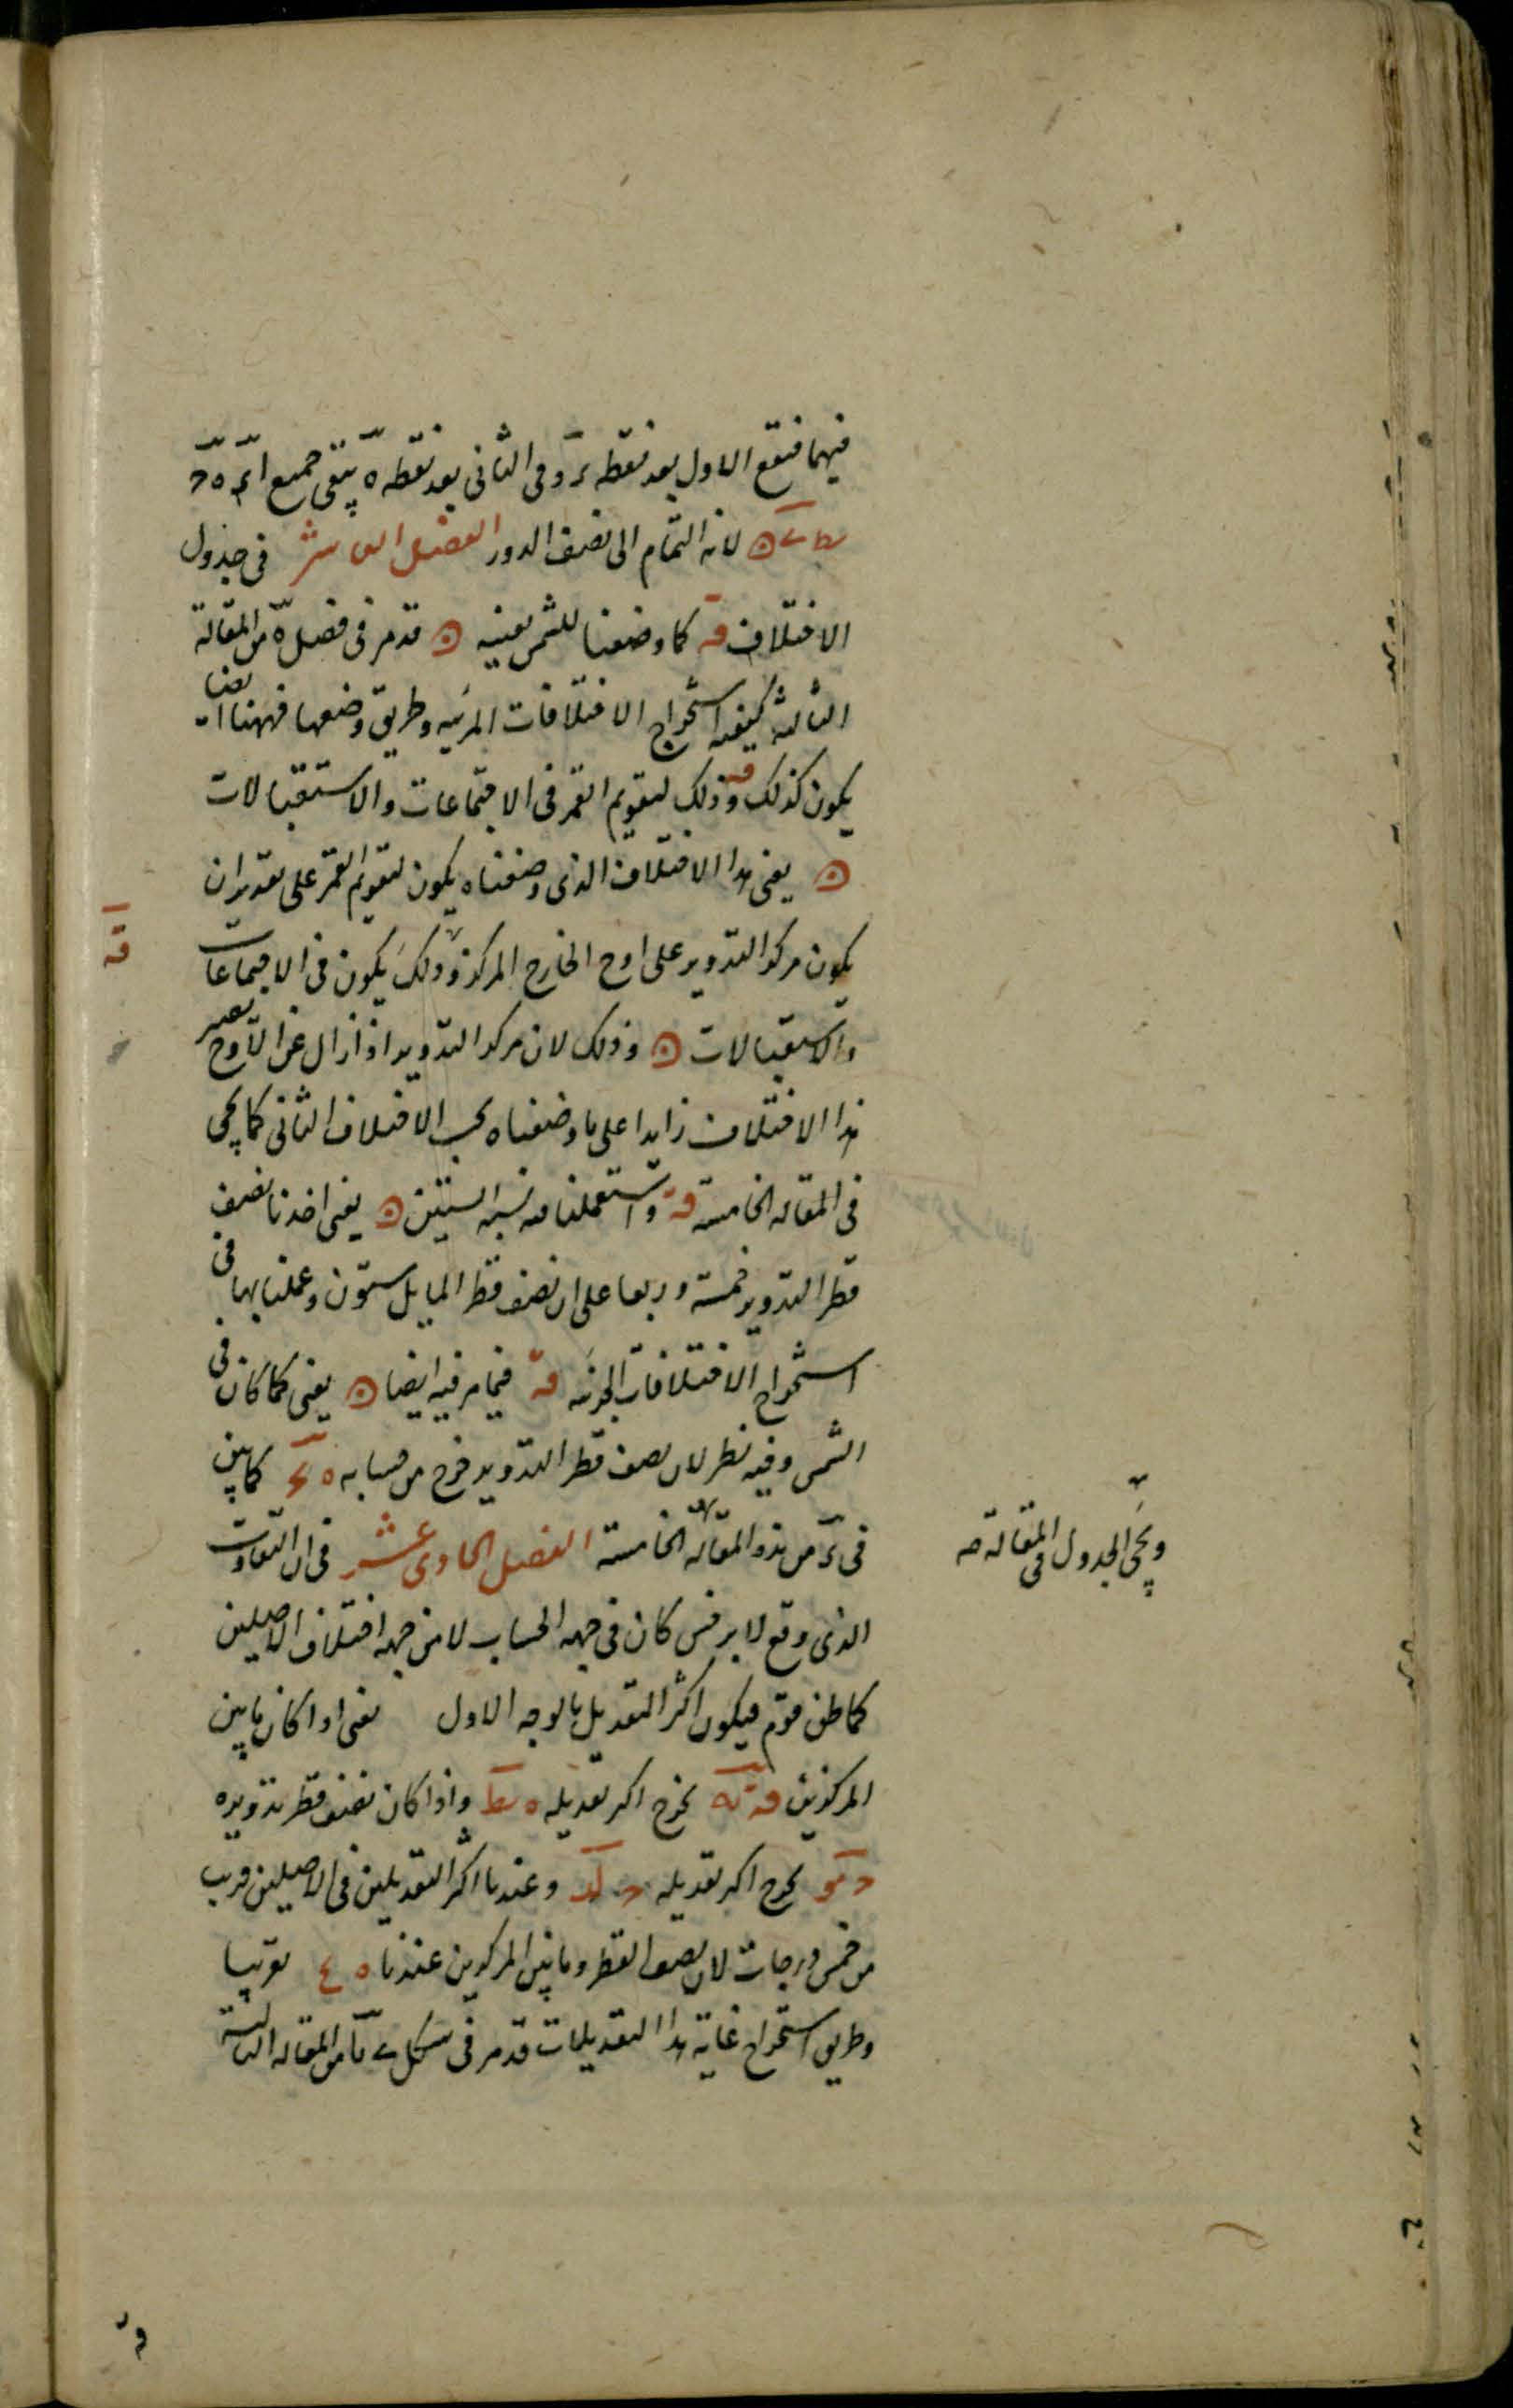 فيهما فتقع الاول بعد نقطة ر وفى الثانى بعد نقطة ه يبقى جميع
لانه التمام الى نصف الدور الفصل العاشر فى جدول
الاختلاف قه كما وضعنا للشمس بعينه قد مر فى فصل ه من المقالة
الثالثة كيفية استخراج الاختلافات المرئيه وطريق وضعها فههنا ايضا
يكون كذلك قه وذلك لتقويم القمر فى الاجتماعات والاستقبالات
يعنى هذا الاختلاف الذى وضعناه يكون لتقويم القمر على تقدير ان
يكون مركز التدوير على اوج الخارج المركز وذلك يكون فى الاجتماعات
والاستقبالات وذلك لان مركز التدوير اذا زال عن الاوج يصير
هذا الاختلاف زايدا على ما وضعناه بحسب الاختلاف الثانى كما يجى
فى المقاله الخامسة قه واستعملنا فيه نسبة الستين يعنى اخذنا نصف
قطر التدوير خمسة وربعا على ان نصف قطر المايل ستون وعملنا بها فى
استخراج الاختلافات الجزئيه قه فيما مر فيه ايضا يعنى كما كان فى
الشمس وفيه نظر لان نصف قطر التدوير خرج من حسابه كما يبين
فى من هذه المقالة الخامسة الفصل الحادى عشر فى ان التفاوت
الذى وقع لابرخس كان فى جهة الحساب لا من جهة اختلاف الاصلين
كما ظن قوم فيكون اكثر التعديل بالوجه الاول يعنى اذا كان ما بين
المركزين يخرج اكثر تعديله ه مط واذا كان نصف قطر تدويره
د مو يخرج اكثر تعديله د لد وعندنا اكثر التعديلين فى الاصلين قريب
من خمس درجات لان نصف القطر وما بين المركزين عندنا تقريبا
وطريق استخراج غاية هذا التعديلات قد مر فى شكل من المقاله الثالثة
قه
ويجى الجدول فى المقالة ه